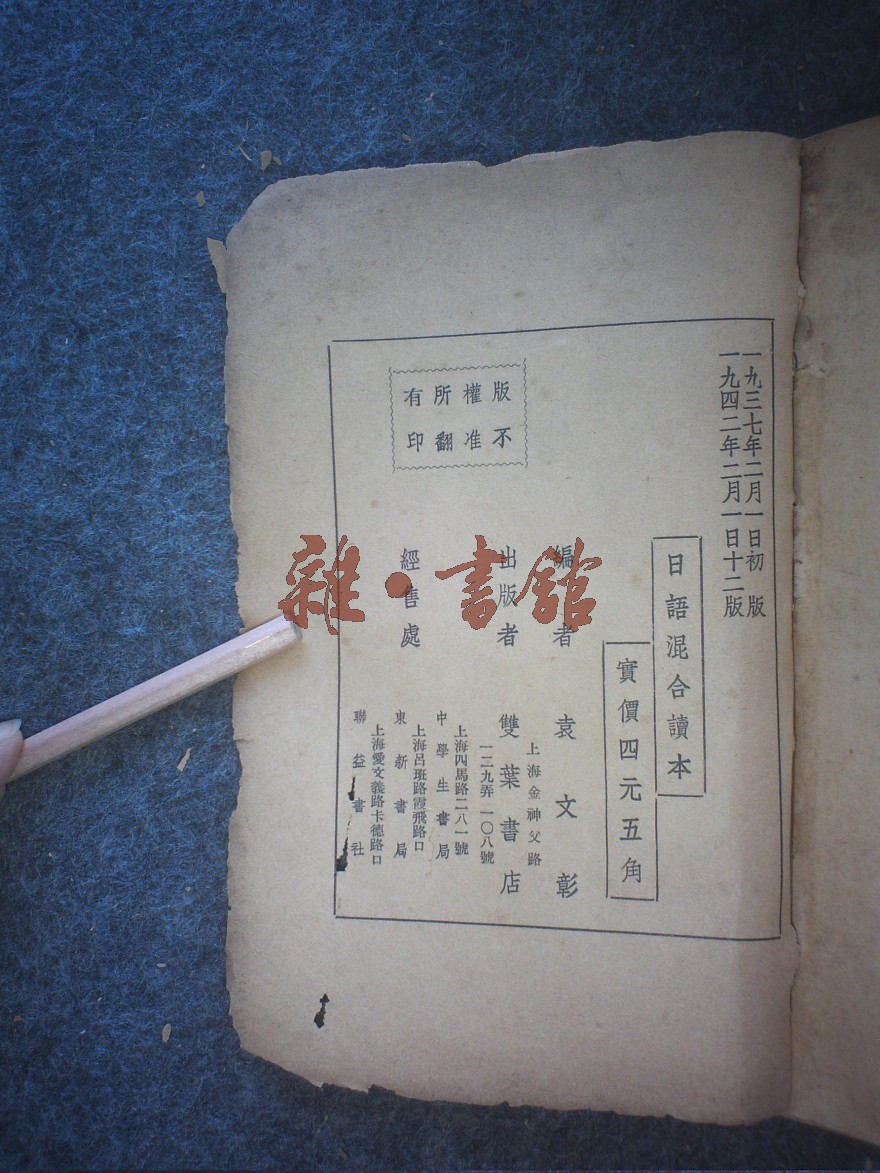 一九三七年二月一日初版
一九四二年二月一日十二版
日語混合讀本
實價四元五角
編者 袁文彰
上海金神父路
出版者 雙葉書店
一二九弄一〇八號
上海四馬路二八一號
中學生書局
經售處
上海呂班路霞飛路口
東新書局
上海愛文義路卡德路口
聯益書社
版權所有
不准翻印
雜·書館